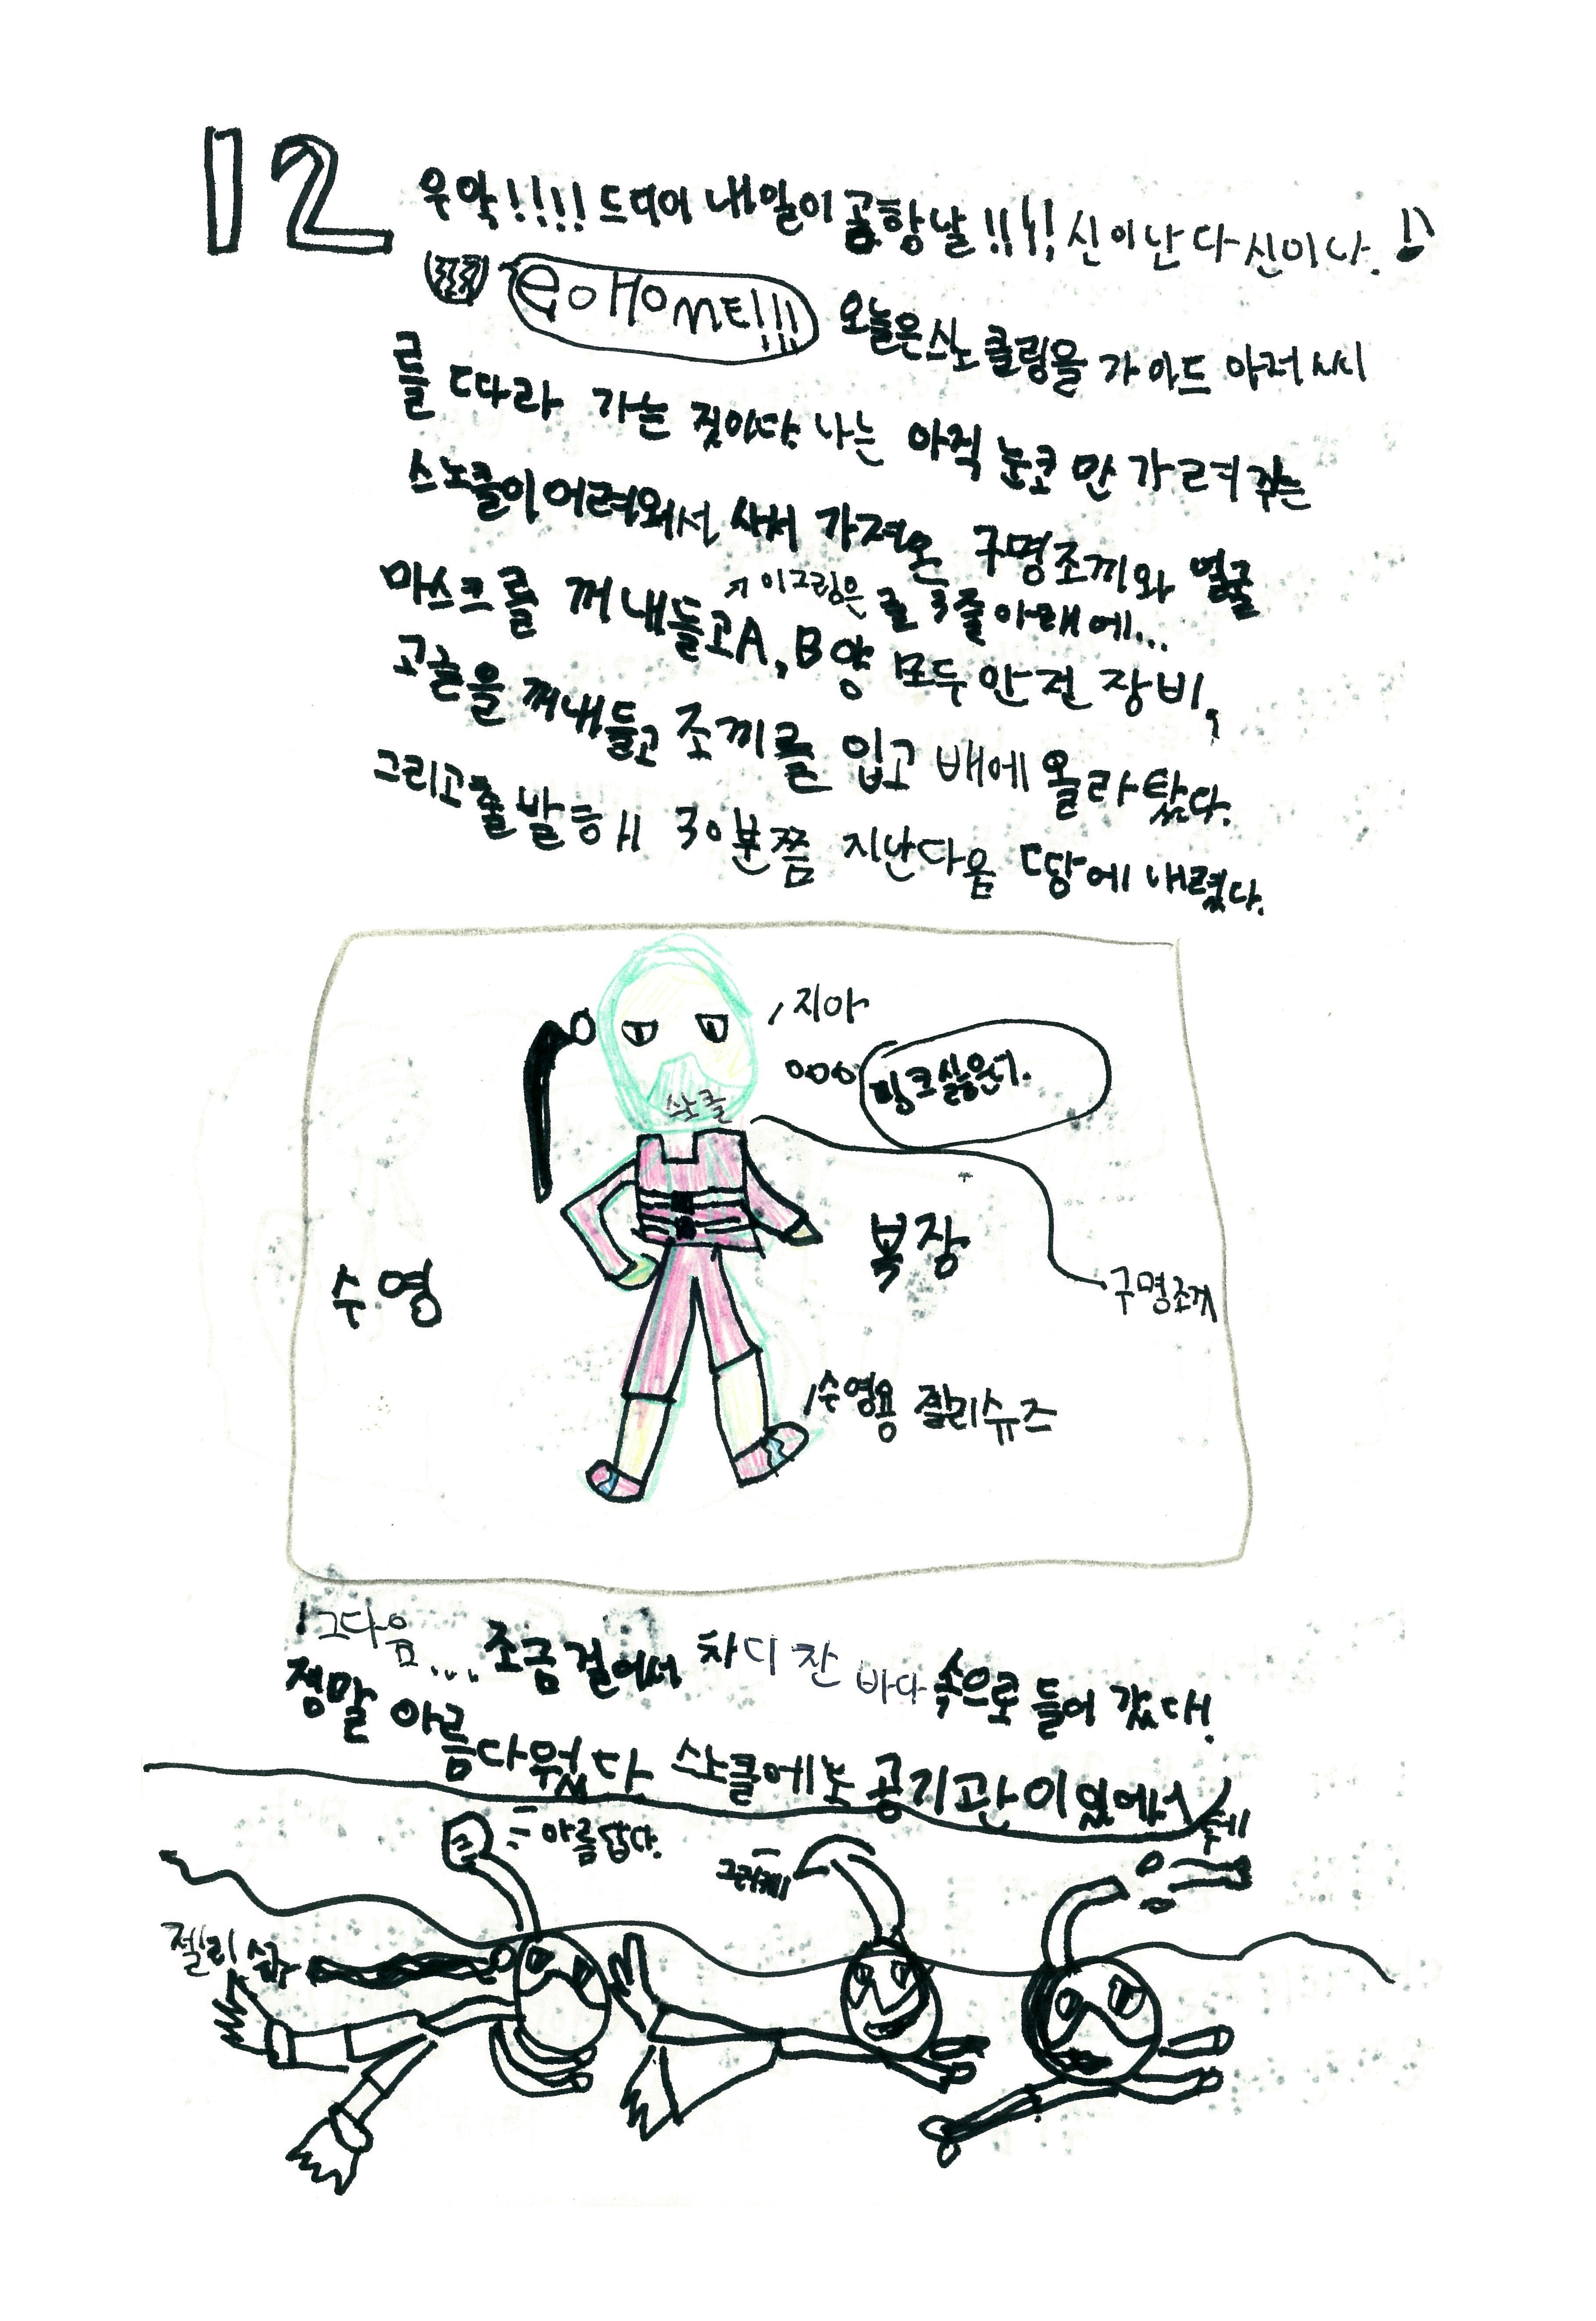 12
우와!!!! 드디어 내일이 공항날!!!! 신이난다 신이나.
GO HOME!!!
오늘은 스노쿨링을 가이드 아저씨
를 따라 가는 것이다. 나는 아직 눈코만 가려주는
스노쿨이 어려워서 가져온 구명조끼와 얼굴
마스크를 꺼내들고 A, B양 모두 안전 장비,
↗ 이그림은 3줄 아래에...
고글을 꺼내들고 조끼를 입고 배에 올라탔다.
그리고 출발해 30분쯤 지난다음 땅에 내렸다.
지아
핑크싫은데.
스노쿨
수영
복장
구명조끼
수영용 젤리슈즈
그다음... 조금 걸어서 차디찬 바다 속으로 들어 갔다!
정말 아름다웠다 스노쿨에는 공기관이 있어서
아름답다.
그러게
젤리슈즈